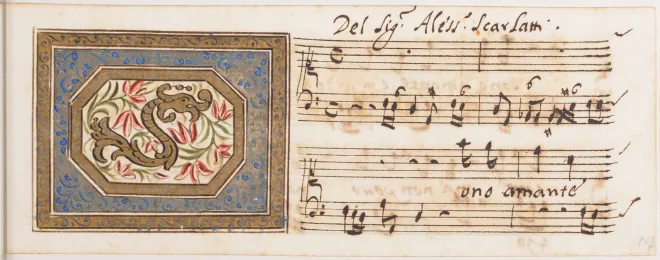 Del Sig.r Aless.o Scarlatti.
6 6 6 6
S
ono amante